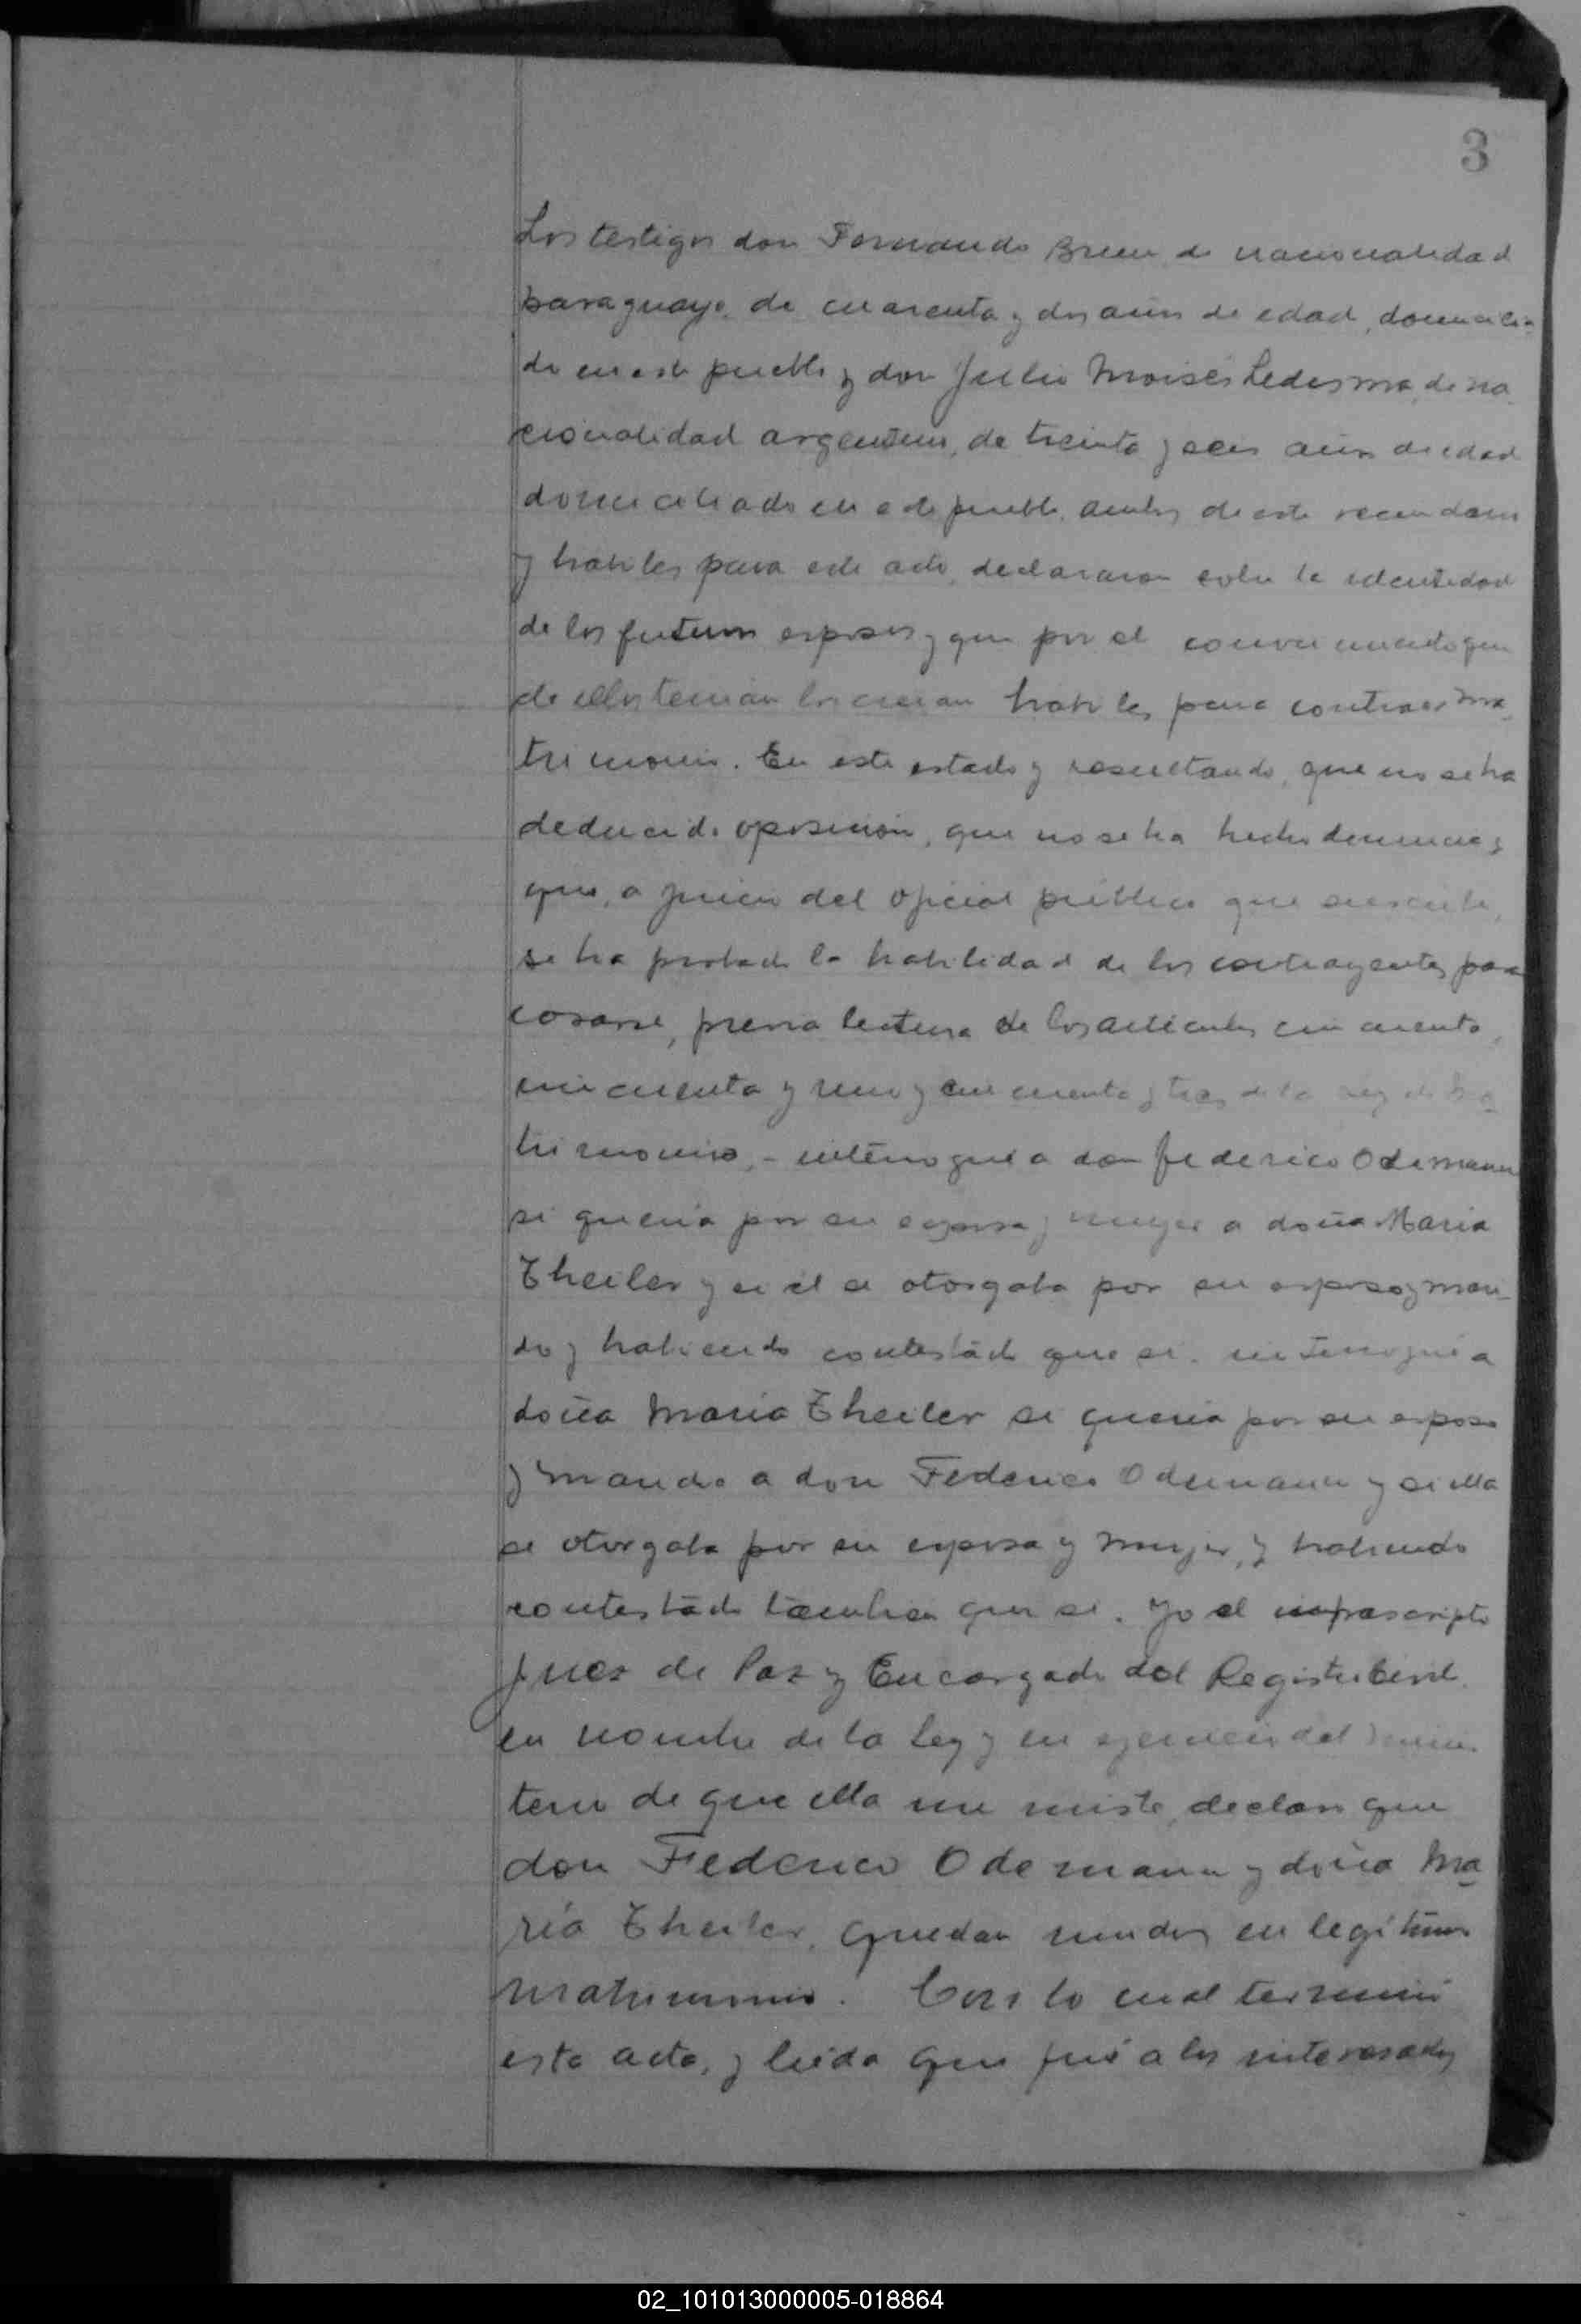 3
Los testigos don Fernando Bruu de nacionalidad
paraguayo, de cuarenta y dos años de edad, domicilia-
do en este pueblo y don Julio Moisés Ledesma, de na-
cionalidad argentino, de treinta y seis años de edad
domiciliado en este pueblo, ambos de este vecindario
y habiles para este acto, declararon sobre la identidad
de los futuros esposos y que por el conocimiento que
de ellos tenian los creian habiles para contraer ma-
trimonio. En este estado y resultando, que no se ha
deducido oposición, que no se ha hecho denuncia y
que, a juicio del oficial público que suscribe,
se ha probado la habilidad de los contrayentes para
casarse, previa lectura de los articulos cincuenta,
cincuenta y uno y cincuenta y tres de la ley de Ma-
trimonio, - interrogué a don Federico Odemann
si queria por su esposa y mujer a doña Maria
Theiler y si él se otorgaba por su esposo y mari-
do y habiendo contestado que si. interrogué a
doña Maria Theiler si queria por su esposo
y marido a don Federico Odemann y si ella
se otorgaba por su esposa y mujer, y habiendo
contestado tambien que si. Yo el infrascripto
Juez de Paz y Encargado del Registro Civil.
en nombre de la Ley y en ejercicio del minis-
terio de que ella me inviste, declaro que
don Federico Odemann y doña Ma-
ría Theiler, quedan unidos en legítimo
matrimonio. Con lo cual terminó
esta acta, y leida que fué a los interesados
02_101013000005-018864